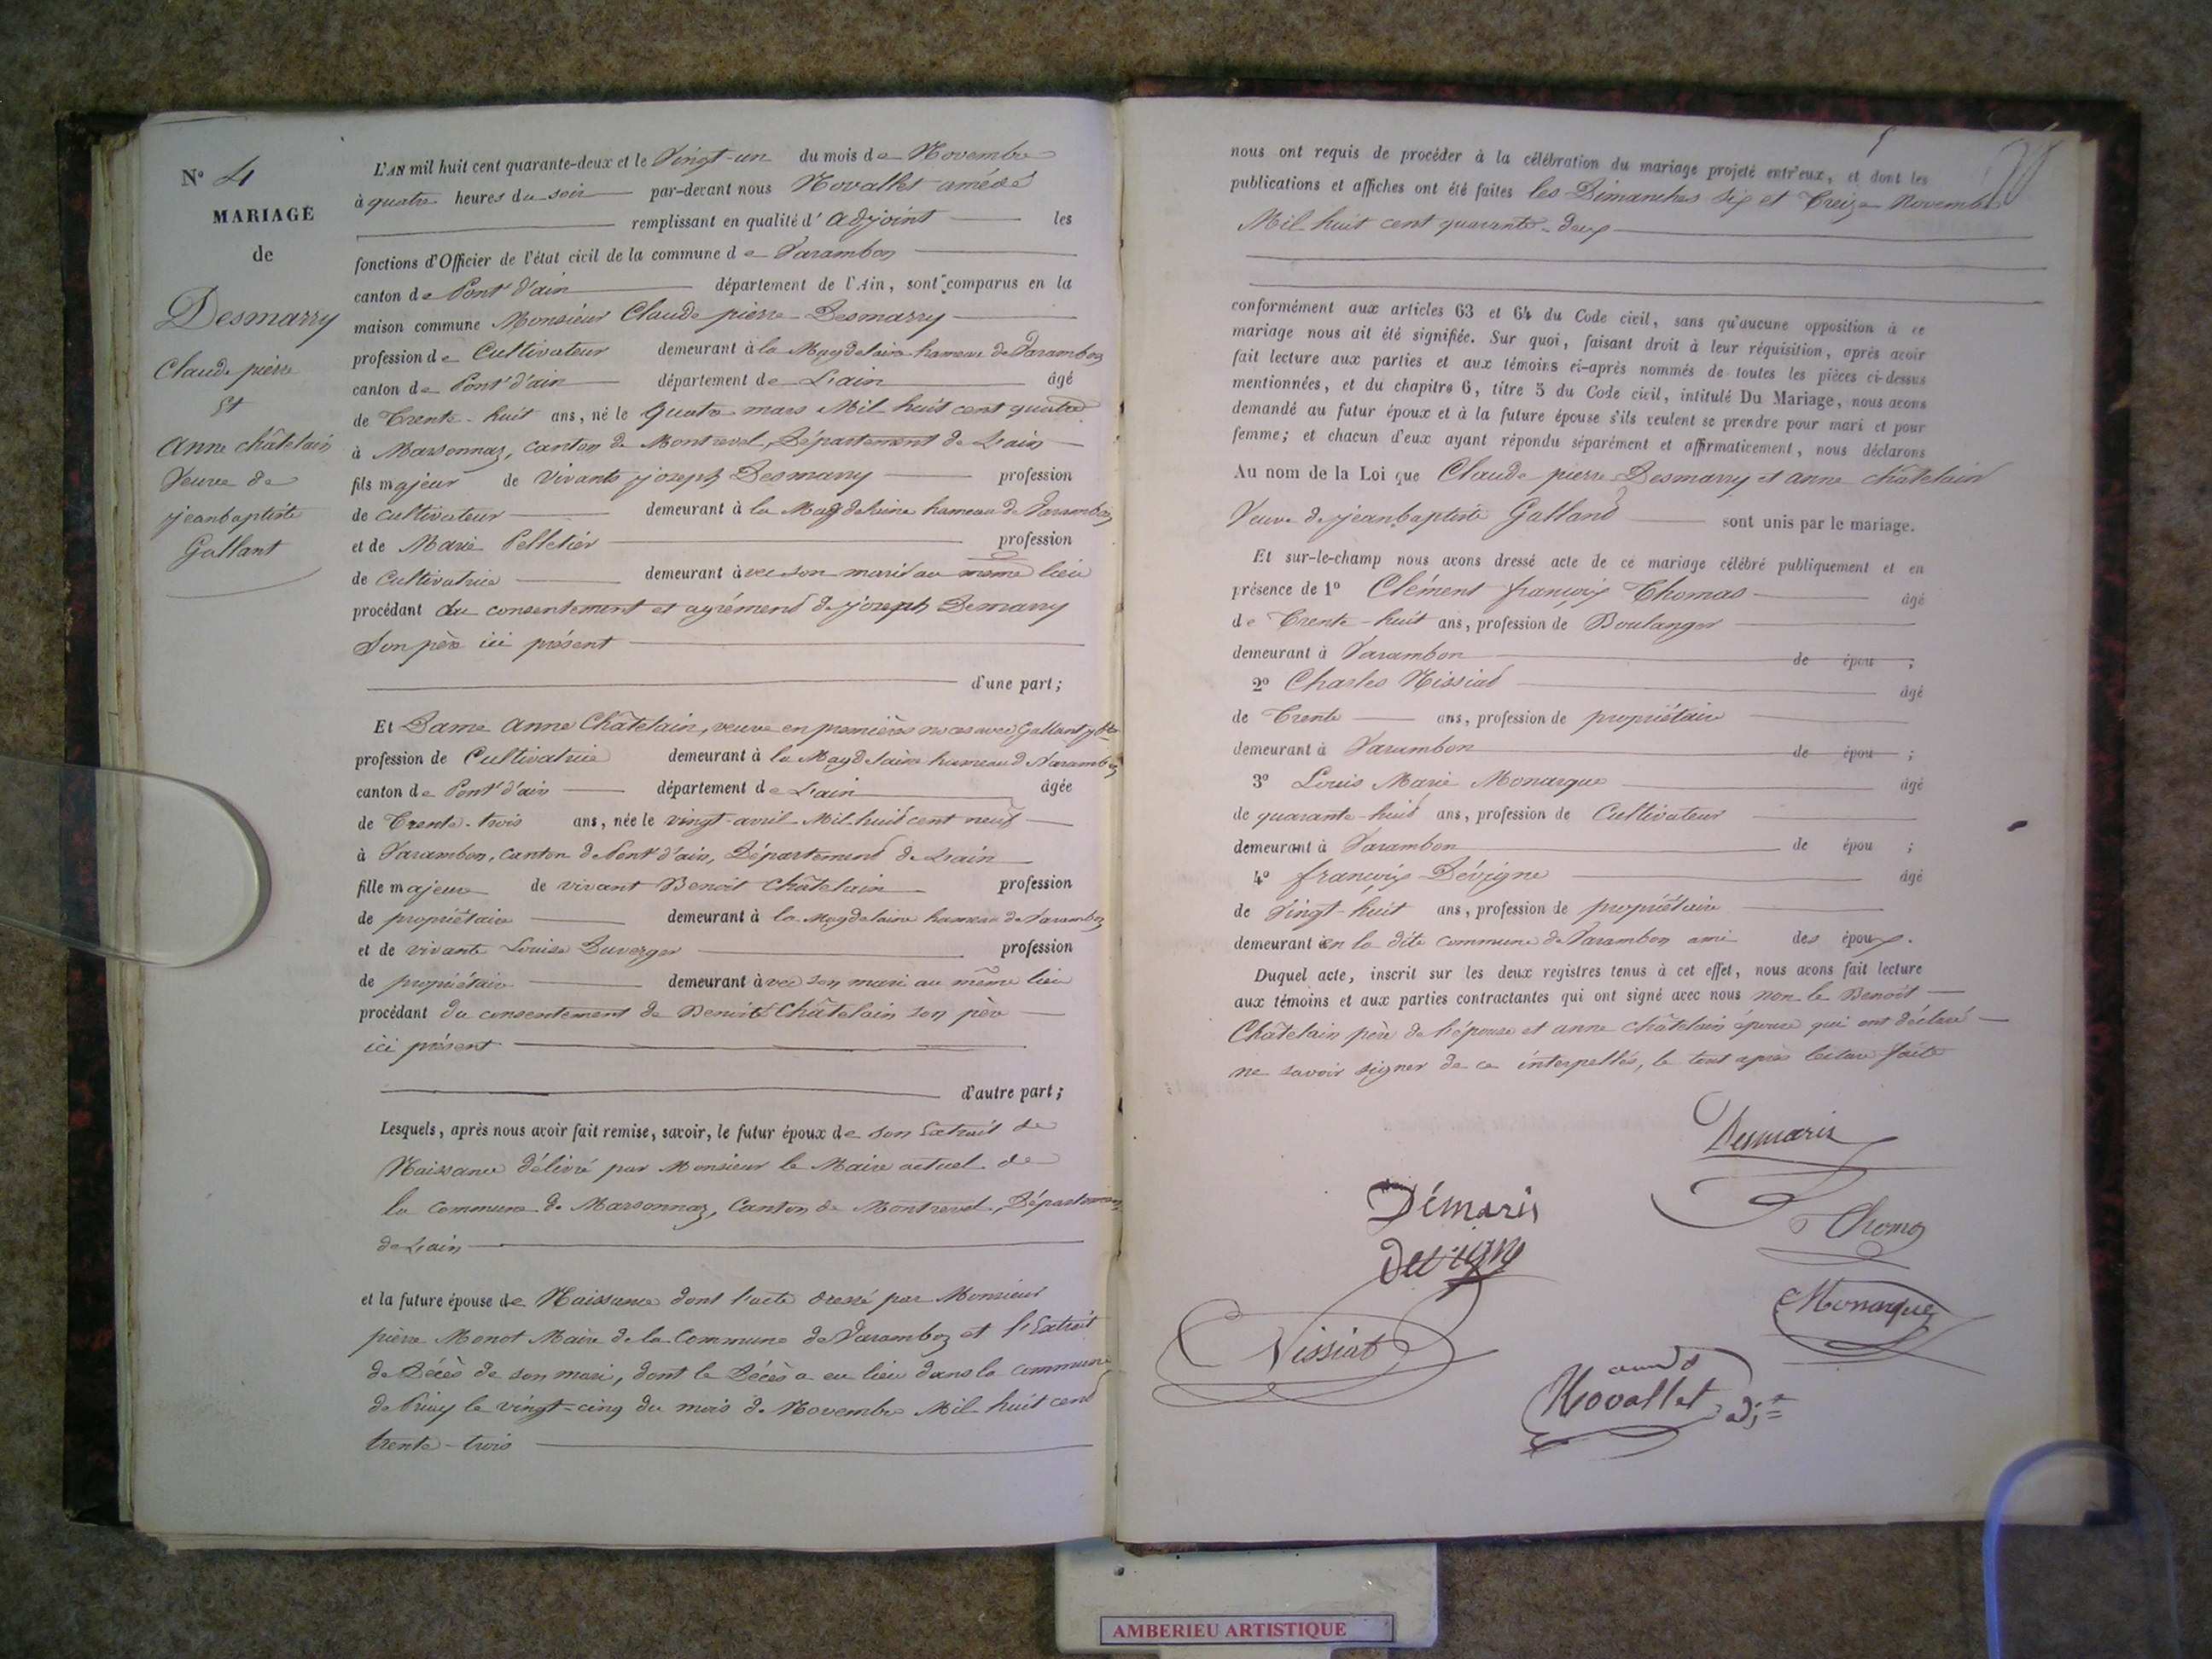 N° 4
MARIAGE
de
Desmarry
Claude pierre
Et
Anne châtelain
Veuve de
jeanbaptiste
Gallant
L'AN mil huit cent quarante-deux et le Vingt-un du mois de Novembre
à quatre heures du soir par-devant nous Novallet amédé
remplissant en qualité d' Adjoint les
fonctions d'Officier de l'état civil de la commune de Varambon
canton de Pont d'ain département de l'Ain, sont comparus en la
maison commune Monsieur Claude pierre Desmarry
profession de Cultivateur demeurant à la Magdelaine hameau de Varambon
canton de Pont d'ain département de L'ain âgé
de Trente-huit ans, né le Quatre mars Mil huit cent quatre
à Marsonnaz, canton de Montrevel, Département de L'ain
fils majeur de Vivants joseph Desmarry profession
de cultivateur demeurant à la Magdelaine hameau de Varambon
et de Marie Pelletier profession
de Cultivatrice demeurant avec son mari au même lieu
procédant du consentement et agrément de joseph Desmarry
Son père ici présent
d'une part;
Et Dame Anne Châtelain, veuve en premières noces avec Gallant jbte
profession de Cultivatrice demeurant à la Magdelaine hameau de Varambon
canton de Pont d'ain département de L'ain âgée
de Trente-trois ans, née le vingt-avril Mil huit cent neuf
à Varambon, canton de Pont d'ain, Département de L'ain
fille majeure de vivant Benoit Châtelain profession
de propriétaire demeurant à la Magdelaine hameau de Varambon
et de vivante Louise Duverger profession
de propriétaire demeurant avec son mari au même lieu
procédant du consentement de Benoit Châtelain son père
ici présent
d'autre part;
Lesquels, après nous avoir fait remise, savoir, le futur époux de son Extrait de
Naissance délivré par Monsieur le Maire actuel de
la Commune de Marsonnaz, Canton de Montrevel, Département
de L'ain
et la future épouse de Naissance dont l'acte dressé par Monsieur
pierre Monot Maire de la Commune de Varambon et l'Extrait
de Décès de son mari, dont le Décès a eu lieu dans la commune
de Priay le vingt-cinq du mois de Novembre Mil huit cent
trente-trois
nous ont requis de procéder à la célébration du mariage projeté entr'eux, et dont les
publications et affiches ont été faites les Dimanches Six et Treize Novembre
Mil huit cent quarante-deux
conformément aux articles 63 et 64 du Code civil, sans qu'aucune opposition à ce
mariage nous ait été signifiée. Sur quoi, faisant droit à leur réquisition, après avoir
fait lecture aux parties et aux témoins ci-après nommés de toutes les pièces ci-dessus
mentionnées, et du chapitre 6, titre 5 du Code civil, intitulé Du Mariage, nous avons
demandé au futur époux et à la future épouse s'ils veulent se prendre pour mari et pour
femme; et chacun d'eux ayant répondu séparément et affirmativement, nous déclarons
Au nom de la Loi que Claude pierre Desmarry et anne châtelain
Veuve de jeanbaptiste Galland sont unis par le mariage.
Et sur-le-champ nous avons dressé acte de ce mariage célébré publiquement et en
présence de 1° Clément françois Thomas âgé
de Trente-huit ans, profession de Boulanger
demeurant à Varambon de épou ;
2° Charles Nissiat âgé
de Trente ans, profession de propriétaire
demeurant à Varambon de épou ;
3° Louis Marie Monarque âgé
de quarante-huit ans, profession de Cultivateur
demeurant à Varambon de épou ;
4° françois Dévigne âgé
de Vingt-huit ans, profession de propriétaire
demeurant en la dite commune de Varambon ami des époux.
Duquel acte, inscrit sur les deux registres tenus à cet effet, nous avons fait lecture
aux témoins et aux parties contractantes qui ont signé avec nous non le Benoit
Châtelain père de l'épouse et anne châtelain épouse qui ont déclaré
ne savoir signer de ce interpellés, le tout après lecture faite
Desmaris
Démaris
Thomas
devigne
Monarque
Nissiat
Novallet adjt
AMBERIEU ARTISTIQUE